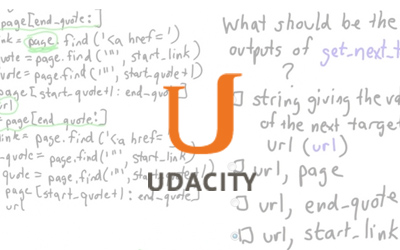 page[end_quote:]
nk = page.find('<a href=')
uote = page.find('"', start_link)
uote = page.find('"', start_quote+1)
page[start_quote+1:end_quote]
url
page[end_quote:]
link = page.find('<a href=
quote = page.find('"', start_link)
quote = page.find('"', start_quote+1)
page[start_quote+1:end_quote]
url
What should be the
outputs of get_next_t
?
string giving the va
of the next target
url (url)
url, page
url, end_quote
url, start_link
UDACITY